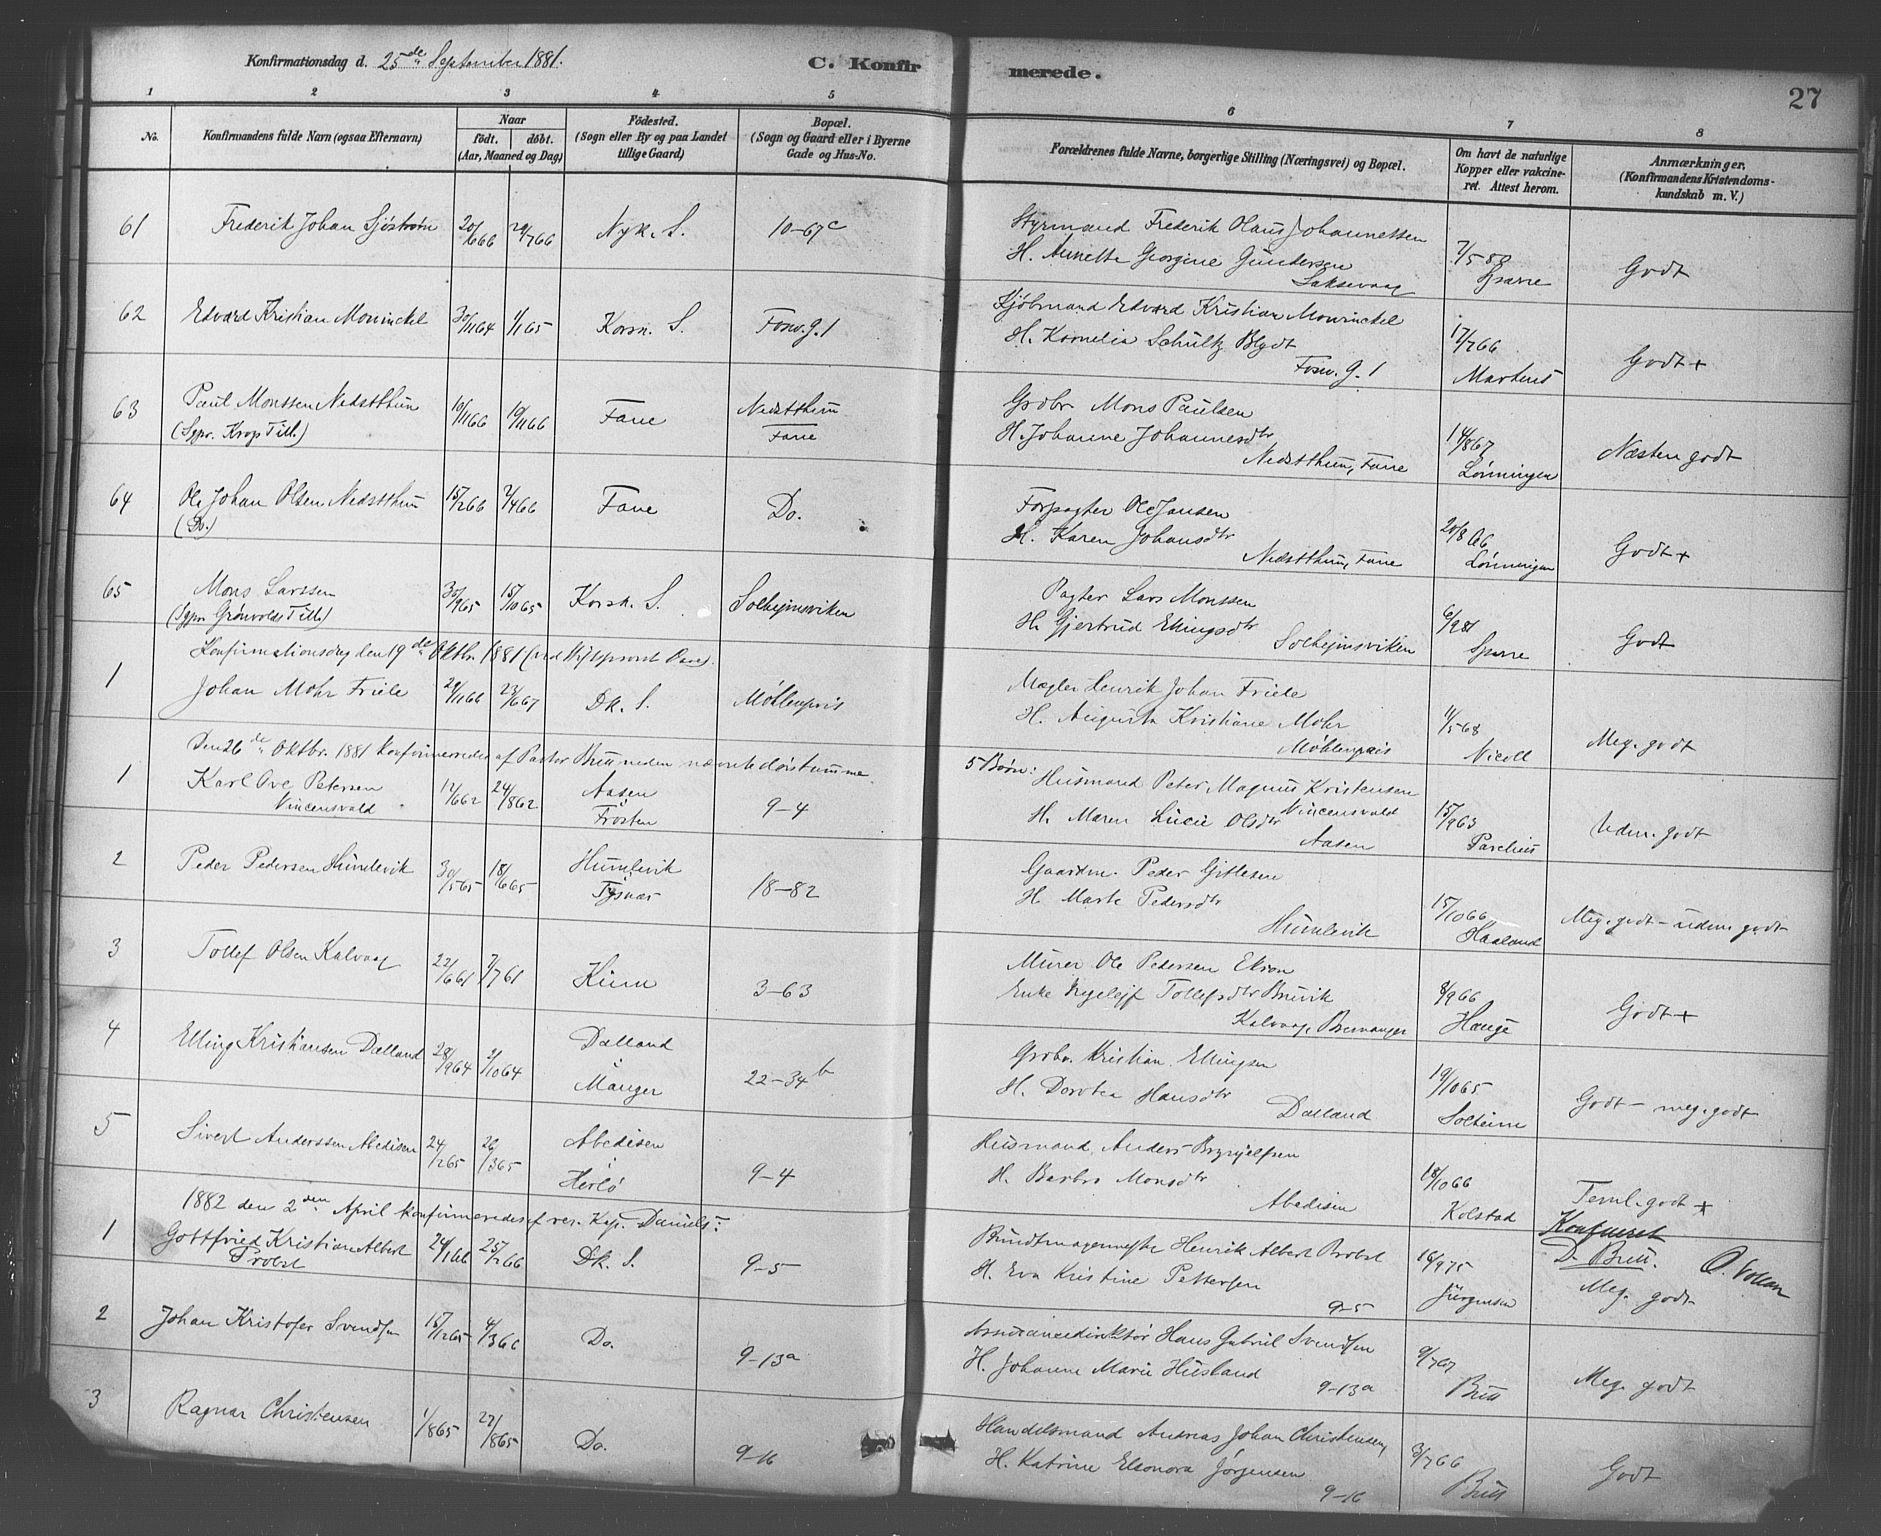 Konfirmationsdag d. 25de September 1881.
C. Konfirmerede.
27
1 2 3 4 5 6 7 8
No.
Konfirmandens fulde Navn (ogsaa Efternavn)
Naar
født. døbt.
(Aar, Maaned og Dag)
Fødested.
(Sogn eller By og paa Landet
tillige Gaard)
Bopæl.
(Sogn og Gaard eller i Byerne
Gade og Hus-No.
Forældrenes fulde Navne, borgerlige Stilling (Næringsvei) og Bopæl.
Om havt de naturlige
Kopper eller vakcine-
ret. Attest herom.
Anmærkninger,
(Konfirmandens Kristendoms-
kundskab m. V.)
61 Frederik Johan Sjöström 20/666 29/766 Nyk. S. 10-67c
Styrmand Frederik Olaus Johannessen
H. Annette Georgine Gundersen
Laksevaag
7/5 80
Sparre
Godt
62 Edvard Kristian Monrinckel 30/1164 1/165 Korsk. S. Fosw. g. 1
Kjøbmand Edvard Kristian Monrinckel
H. Kornelia Schultz Blydt
Fosw. g. 1
17/766
Martens
Godt +
63 Paul Monssen Nedstthun 10/1166 19/1166 Fane Nedstthun
(Sgpr. Krops Till.) Fane
Grdbr. Mons Paulsen
H. Johanne Johannesdtr
Nedstthun, Fane
14/867
Lønningen
Næsten godt
64 Ole Johan Olsen Nedstthun 15/266 2/466 Fane Do.
(Do.)
Forpagter Ole Jansen
H. Karen Johansdtr
Nedstthun, Fane
20/8 66
Lønningen
Godt +
65 Mons Larssen 30/965 15/1065 Korsk. S. Solhejmsviken
(Sgpr. Grønvolds Till.)
Pagter Lars Monssen
H. Gjertrud Ellingsdtr
Solhejmsviken
6/981
Sparre
Godt
Konfirmationsdag den 19de Oktbr. 1881 (ved Stiftsprovst Pave).
1 Johan Mohr Friele 29/1166 23/667 Dk. S. Møhlenpris
Mægler Henrik Johan Friele
H. Augusta Kristiane Mohr
Møhlenpris
11/568
Nicoll
Meg. godt
Den 26de Oktbr. 1881 konfirmeredes af Pastor Bruu neden nævnte døvstumme
5 Børn:
1 Karl Ove Petersen 12/662 24/862 Aasen 9-4
Vincensvald Frosten
Husmand Peter Magnus Kristensen
Vincensvald
H. Maren Lucie Olsdtr
Aasen
15/963
Parelius
Udm. godt
2 Peder Pedersen Humlevik 30/565 18/665 Humlevik 18-82
Tysnæs
Gaardm. Peder Gitlesen
H. Marte Pedersdtr
Humlevik
15/1066
Haaland
Meg. godt - udm. godt
3 Tollef Olsen Kalvaag 22/661 7/761 Kinn 3-63
Murer Ole Pedersen Ekron
Enke Ingelejf Tollefsdtr Bruvik
Kalvaag, Bremanger
8/966
Hauge
Godt +
4 Elling Kristiansen Dalland 28/964 2/1064 Dalland 22-34b
Manger
Grdbr. Kristian Ellingsen
H. Dorotea Hansdtr
Dalland
19/1065
Solheim
Godt - meg. godt
5 Sivert Anderssen Abedisen 24/265 26/365 Abedisen 9-4
Herlö
Husmand Anders Brynjelfsen
H. Barbro Monsdtr
Abedisen
18/1066
Kolstad
Teml. godt +
1882 den 2den April konfirmeredes af res. Kap. Daniels:
Konfereret
D. Bruu. O. Vollan
1 Gottfried Kristian Albert 24/166 25/266 Dk. S. 9-5
Probst
Bundtmagermester Henrik Albert Probst
H. Eva Kristine Pettersen
9-5
16/975
Jürgensen
Meg. godt
2 Johan Kristofer Svendsen 15/1265 4/366 Do. 9-13a
Assurancedirektör Hans Gabriel Svendsen
H. Johanne Marie Husland
9-13a
9/767
Bull
Meg. godt
3 Ragnar Christensen 1/865 27/865 Do. 9-16
Handelsmand Andreas Johan Christensen,
H. Katrine Eleonora Jørgensen
9-16
3/766
Bull
Godt